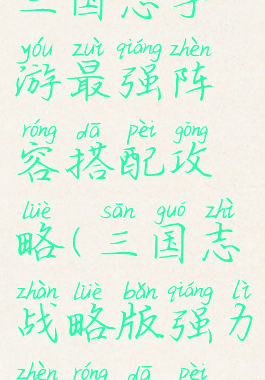 三国志手
yóu zuì qiáng zhèn
游最强阵
róng dā pèi gōng
容搭配攻
lüè sān guó zhì
略(三国志
zhàn lüè bǎn qiáng lì
战略版强力
zhèn róng dā pèi